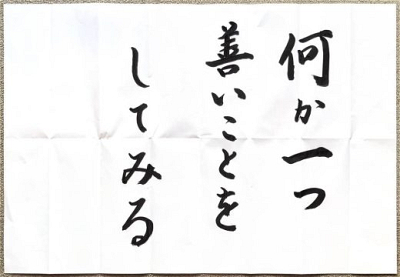 何か一つ
善いことを
してみる